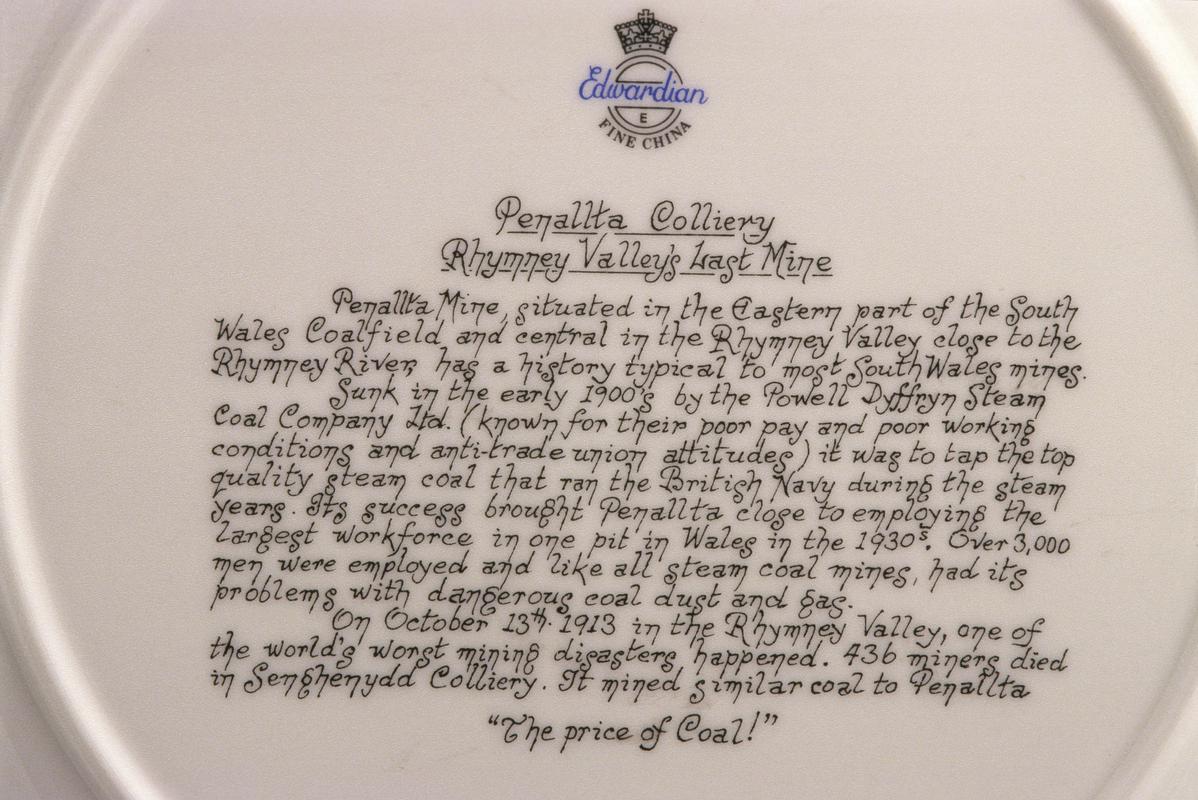 Edwardian
E
FINE CHINA
Penallta Colliery
Rhymney Valley's Last Mine
Penallta Mine, situated in the Eastern part of the South
Wales Coalfield and central in the Rhymney Valley close to the
Rhymney River, has a history typical to most South Wales mines.
Sunk in the early 1900's by the Powell Dyffryn Steam
Coal Company Ltd. (known for their poor pay and poor working
conditions and anti-trade union attitudes) it was to tap the top
quality steam coal that ran the British Navy during the steam
years. Its success brought Penallta close to employing the
largest workforce in one pit in Wales in the 1930s. Over 3,000
men were employed and like all steam coal mines, had its
problems with dangerous coal dust and gas.
On October 13th. 1913 in the Rhymney Valley, one of
the world's worst mining disasters happened. 436 miners died
in Senghenydd Colliery. It mined similar coal to Penallta
"The price of Coal!"